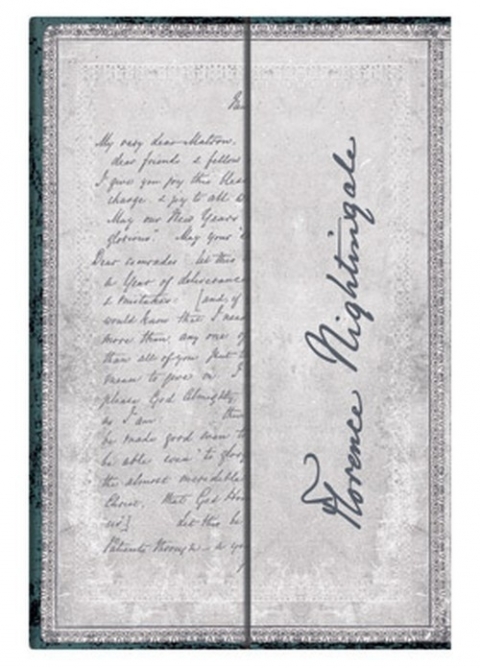 My very dear Matron,
dear friends & fellow
I give you joy this
charge. & joy to all
May our New Years
glorious". May your
Dear comrades: let this
a Year of deliverance
& mistakes: [and, if
would know that I
more than any one of
than all of you
mean to give in I
please God Almighty,
as I am
be made good even
be able even to
the almost incredible
Christ, that God
us!] Let this be
Patients through
Florence Nightingale